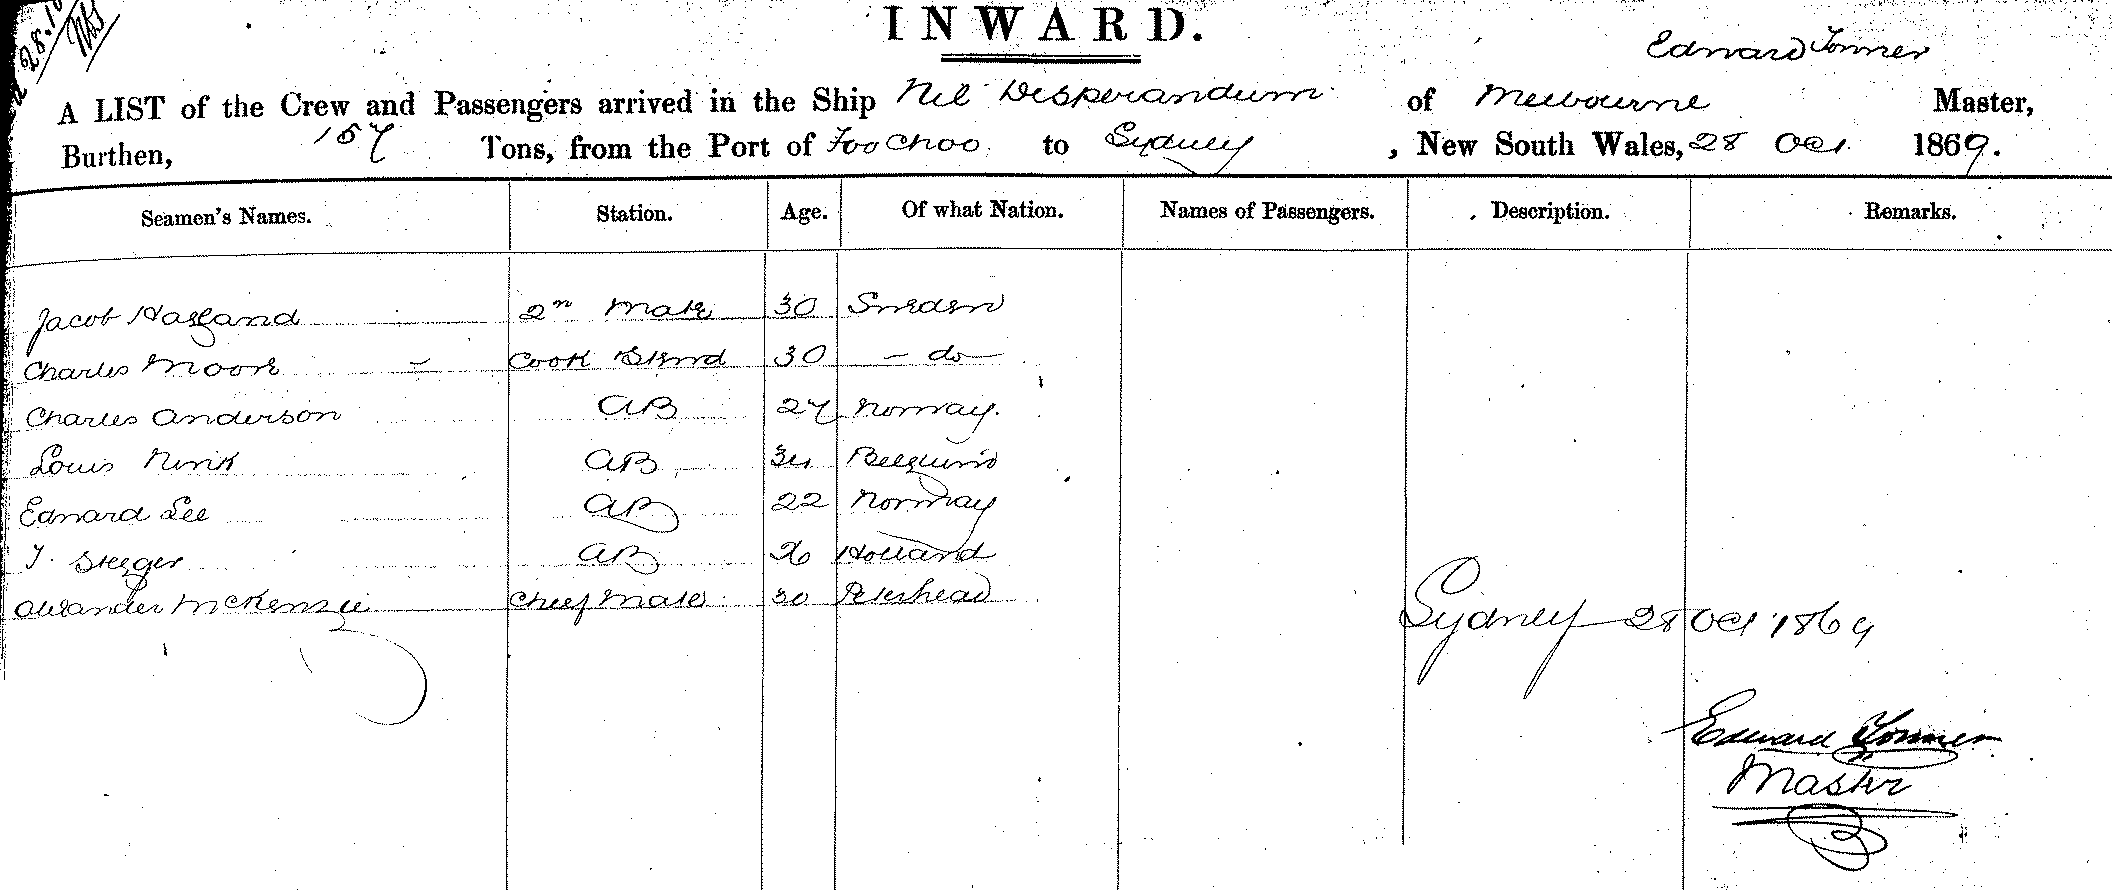 28.10
INWARD.
Edward Tonner
A LIST of the Crew and Passengers arrived in the Ship Nil Desperandum of Melbourne Master,
Burthen, 157 Tons, from the Port of Foo Choo to Sydney, New South Wales, 28 Oct 1869.
Seamen's Names. Station. Age. Of what Nation. Names of Passengers. Description. Remarks.
Jacob Hagland 2n Mate 30 Sweden
Charles Moore Cook Stewrd 30 - do -
Charles Anderson AB 27 Norway.
Louis AB 34 Belguim
Edward Lee AB 22 Norway
J. Steeger AB 26 Holland
Alexander McKenzie Chief Mate 30 Peterhead
Sydney 28 Oct 1869
Edward Tonner
Master